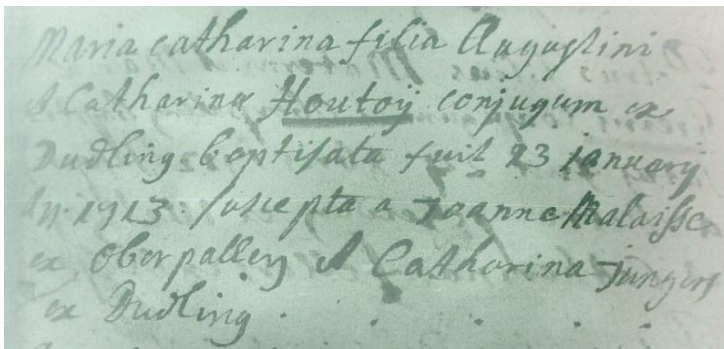 Maria catharina filia Augustini
et Catharinæ Houtoÿ conjugum ex
Dudling baptisata fuit 23 january
1713. suscepta a Joanne Malaisse
ex Oberpallen et Catharina Jungers
ex Dudling.